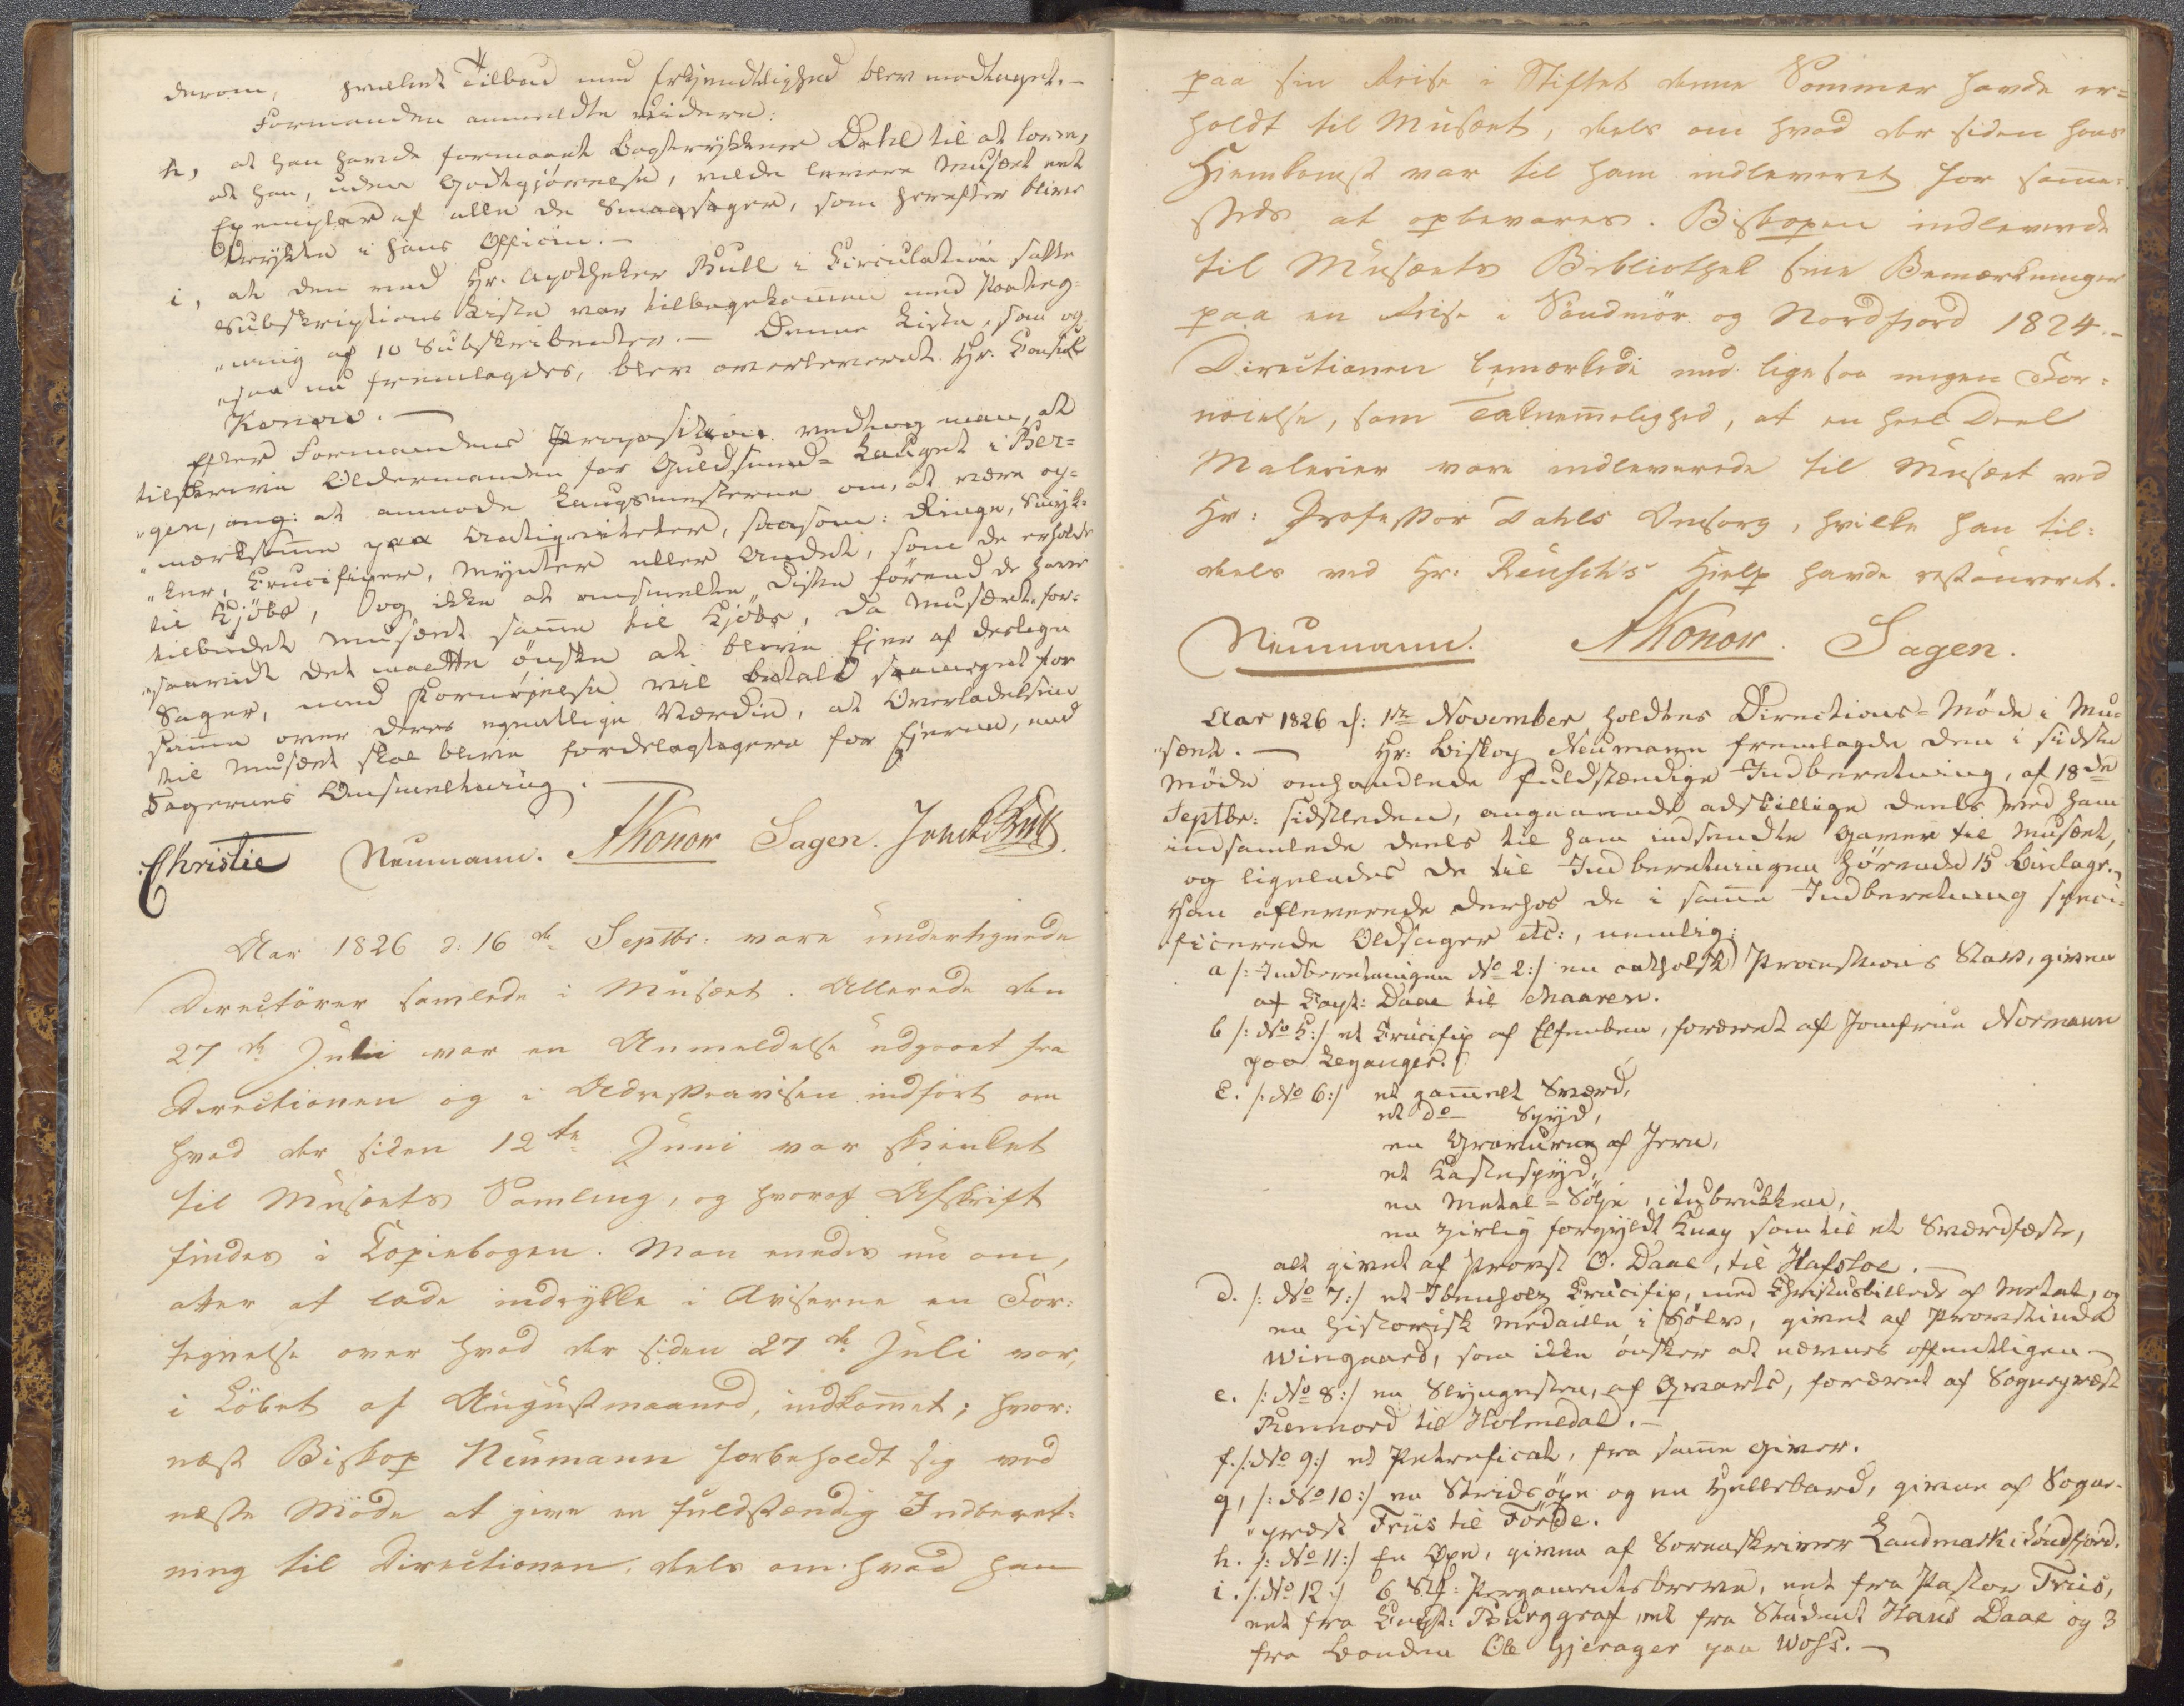 derom, hvilket Tilbud med Erkjendtlighed blev modtaget.–
Formanden anmeldte videre:
h, at han havde formaaet Bogtrykker Dahl til at love,
at han, uden Godtgjörelse, vilde levere Musæet eet
Exemplar af alle de Smaasager, som herefter bliver
trykte i hans Officin.–
i, at den med Hr. Apotheker Bull i Circulation satte
Subskriptions Liste var tilbagekom̄en med Paateg-
„ning af 10 Subskribenter.– Denne Liste, som og-
„saa nu fremlagdes, blev overleveret Hr. Consul
Konow.–
Efter Formandens Proposition vedtog man, at
tilskrive Oldermanden for Guldsmed-Lauget i Ber-
„gen, ang: at anmode Laugsmesterne om, at være op-
„mærksom̄e paa Antiqviteter, saasom: Ringe, Smyk-
„ker, Crucifixer, Mynter eller Andet, som de erholde
til Kjöbs, og ikke at omsmelte disse förend de have
tilbudet Musæet sam̄e til Kjöbs, da Musæet, for-
„saavidt det maatte önske at blive Ejer af deslige
Sager, med Fornöjelse vil betale saameget for
sam̄e over deres egentlige Værdie, at Overladelsen
til Musæet skal blive fordelagtigere for Ejerne, end
Sagernes Omsmeltning.
Christie Neumann. AKonow Sagen. JohnBull.
Aar 1826 d: 16de Septbr: vare undertegnede
Directörer samlede i Musæet. Allerede den
27de Juli var en Anmeldelse udgaaet fra
Directionen og i Adresseavisen indfört om
hvad der siden 12te Juni var skienket
til Musæets Samling, og hvoraf Afskrift
findes i Copiebogen. Man enedes nu om,
atter at lade indrykke i Aviserne en For-
tegnelse over hvad der siden 27de Juli var,
i Löbet af Augustmaaned, indkom̄et; hvor-
næst Biskop Neumann forbeholdt sig ved
næste Möde at give en fuldstændig Indberet-
ning til Directionen, deels om hvad han
paa sin Reise i Stiftet denne Sommer havde er-
holdt til Musæet, deels om hvad der siden hans
Hiemkomst var til ham indleveret for sam̄e-
steds at opbevares. Biskopen indleverede
til Musæets Bibliothek sine Bemærkninger
paa en Reise i Söndmör og Nordfjord 1824.–
Directionen bemærkede med ligesaa megen For-
nöielse, som Taknem̄elighed, at en heel Deel
Malerier vare indleverede til Musæet ved
Hr: Professor Dahls Omsorg, hvilke han til-
deels ved Hr: Reusch's Hielp havde restaureret.
Neumann. AKonow. Sagen.
Aar 1826 d: 1ste November holdtes Directions-Möde i Mu-
„sæet.– Hr: Biskop Neumann fremlagde den i sidste
Möde omhandlede fuldstændige Indberetning, af 18de
Septbr: sidstleden, angaaende adskillige deels ved ham
indsamlede deels til ham indsendte Gaver til Musæet,
og ligeledes de til Indberetningen hörende 15 Bielage.–
Han afleverede derhos de i sam̄e Indberetning speci-
ficerede Oldsager etc:, nemlig:
a /: Indberetningen No 2:/ en catholsk Processions Stav, given
af Capt: Daae til Maaren.
b /: No 5:/ et Crucifix af Elfenben, foræret af Jomfrue Normann
paa Leganger.
c. /: No 6:/ et gam̄elt Sværd,
et do Spyd,
en Gravurne af Jern,
et Kastespyd,
en Metal-Sölje, itubrukken,
en zirlig forgyldt Knap som til et Sværdfæste,
alt givet af Provst O. Daae, til Hafsloe.–
d. /: No 7:/ et Ibenholz Crucifix, med Christusbillede af Metal, og
en historisk Medaille i Sölv, givet af Provstinde
Wingaard, som ikke önsker at nævnes offentligen.–
e. /: No 8:/ en Slyngesten, af Qvarts, foræret af Sognepræst
Rennord til Holmedal.–
f. /: No 9:/ et Petreficat, fra sam̄e Giver.
g, /: No 10:/ en Stridsöxe og en Hellebard, givne af Sogne-
„præst Friis til Förde.
h. /: No 11:/ En Öxe, given af Sorenskriver Landmark i Söndfjord.
i. /: No 12:/ 6 Stk: Pergamentsbreve, eet fra Pastor Friis,
eet fra Capt: Burggraf, eet fra Student Hans Daae og 3
fra Bonden Ole Gjerager paa Woss.–